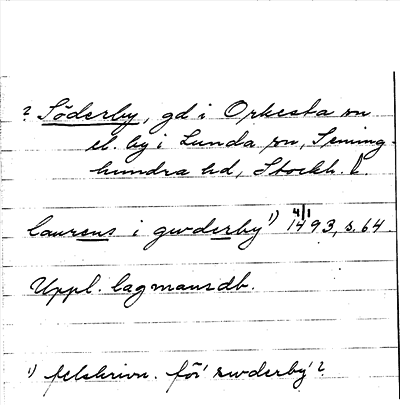 ? Söderby, gd i Orkesta sn
el. by i Lunda sn, Seming-
hundra hd, Stockh. l.
4/1
laurens i gwderby 1) 1493, s. 64.
Uppl. lagmansdb.
1) felskrivn. för 'swderby'?